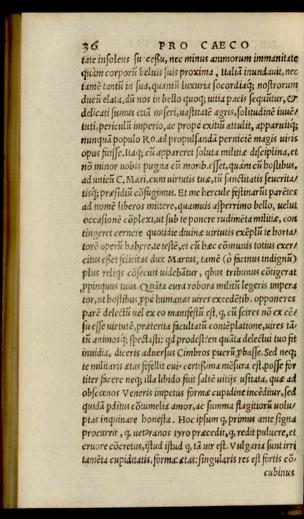 36 PRO CAECO
tate insolens su cessu, nec minus animorum immanitate
quàm corporũ beluis suis proxima, Italiã inundauit, nec
tamẽ tantũ in sua, quantũ luxuria socordiaq; nostrorum
ducũ elata, dũ nos in bello quoq; uitia pacis sequũtur, &
delicati sumus etiã miseri, uastitatẽ agris, solitudinẽ iuuẽ/
tuti, periculũ imperio, ac propè exitiũ attulit, apparuitq;
nunquã populo RO. ad propulsandã perniciẽ magis uiris
opus fuisse. Itaq; cũ appareret soluta militiæ disciplina, et
nõ minor nobis pugna cũ morib. esset, quàm cũ hostibus,
ad unicũ C. Mari, cum uirtutis tuæ, tũ sanctitatis seuerita/
tisq; præsidiũ cõfugimus. Et me hercule festinarũt parẽtes
ad nomẽ liberos mittere, quamuis asperrimo bello, uelut
occasionẽ cõplexi, ut sub te ponere rudimẽta militiæ, con
tingeret cernere quotidie diuinæ uirtutis exẽplũ te horta/
torẽ operũ habere, te testẽ, et cũ hæc cõmunis totius exer/
citus esset felicitas dux Marius, tamẽ (ò facinus indignũ)
plus reliqs cõsecuti uidebãtur, qbus tribunus cõtigerat
ppinquus tuus. Quãta cura robora militũ legeris impera
tor, ut hostibus ppè humanas uires excedẽtib. opponeres
parẽ delectũ uel ex eo manifestũ est, q, cũ scires nõ ex cẽ/
su esse uirtutẽ, præterita facultatũ contẽplatione, uires tã/
tũ animosq; spectasti: qd prodest? en quàta delectui tuo fit
inuidia, diceris aduersus Cimbros puerũ pbasse. Sed neq;
te militaris ætas fefellit cui certissima mẽsura est, posse for
titer facere neq; illa libido fuit saltẽ uitijs usitata, quæ ad
obscœnos Veneris impetus forma cupidine incẽditur, sed
quidã pditus cõtumelia amor, ac summa flagitiorũ uolu/
ptas inquinare honesta. Hoc ipsum q, primus ante signa
procurrit, q, ueteranos tyro præcedit, q, redit puluere, et
cruore cõcretus, istud istud q, tã uir est. Vulgaria sunt irri
tamẽta cupiditatis, forma: ætas: singularis res est fortis cõ/
cubinus